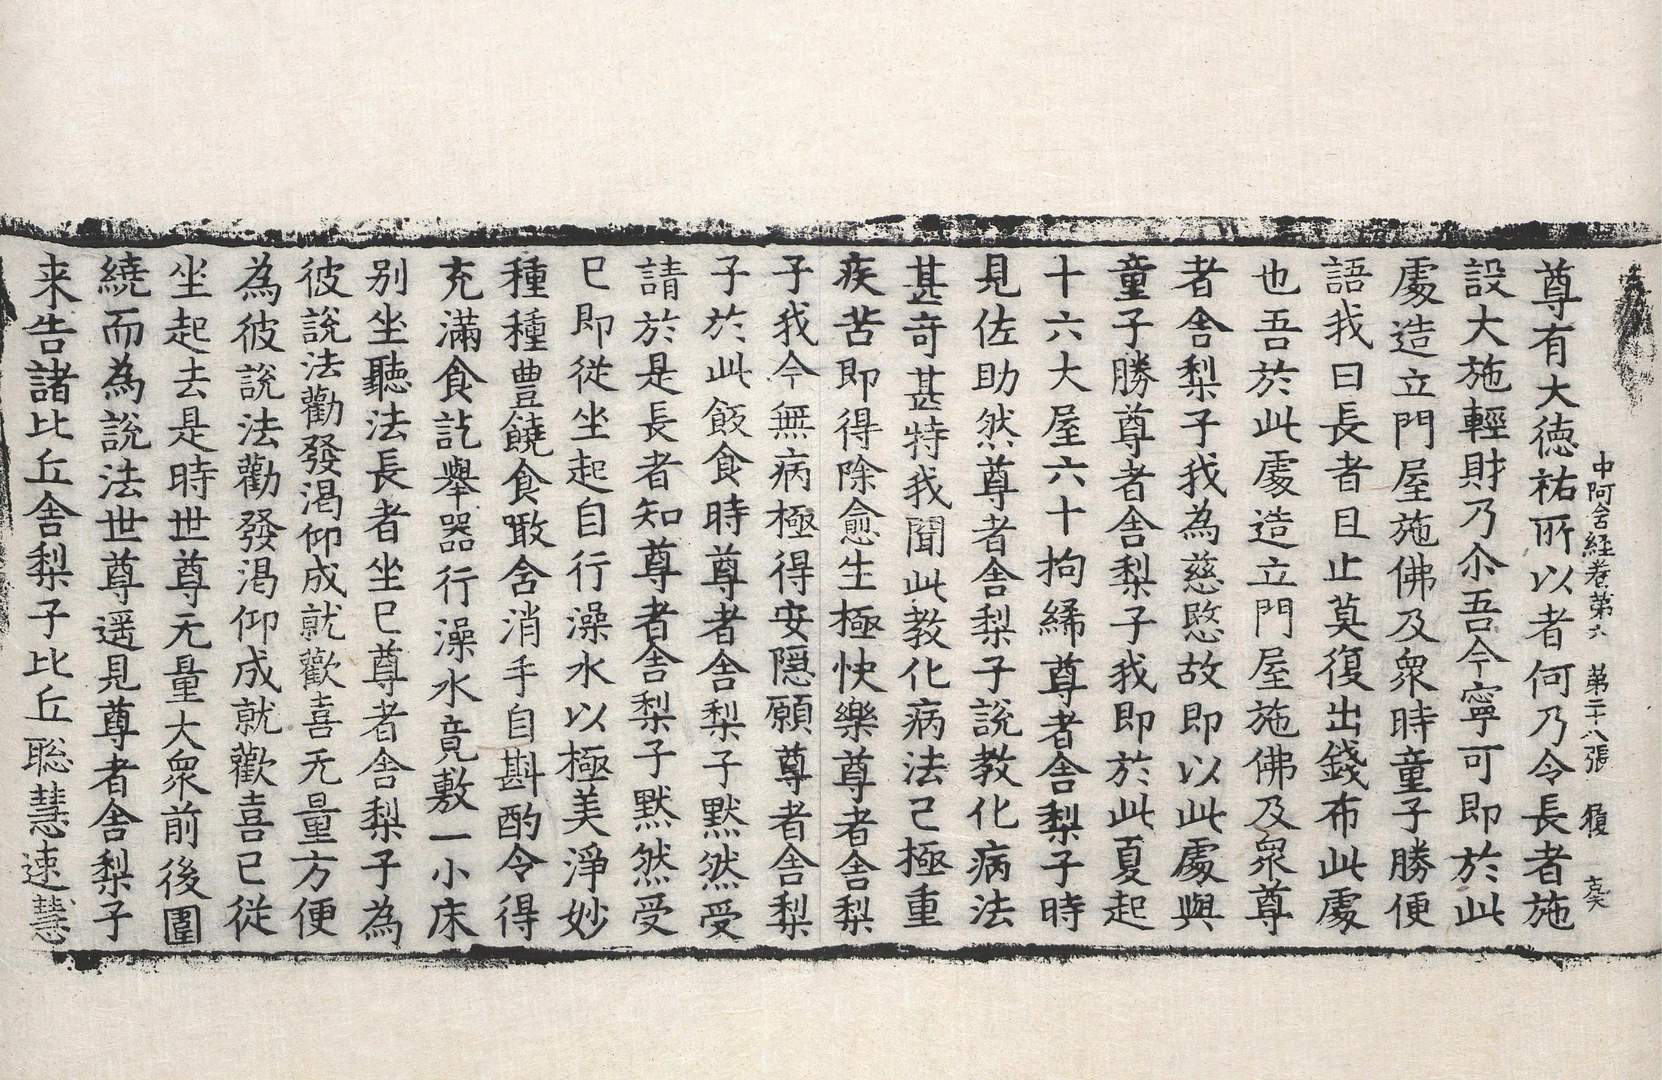 中阿含経卷第六 第二十八張 履
尊有大徳祐所以者何乃令長者施
設大施輕財乃尒吾今寧可即於此
處造立門屋施佛及衆時童子勝便
語我曰長者且止莫復出錢布此處
也吾於此處造立門屋施佛及衆尊
者舎梨子我為慈愍故即以此處與
童子勝尊者舎梨子我即於此夏起
十六大屋六十拘絺尊者舎梨子時
見佐助然尊者舎梨子說教化病法
甚奇甚特我聞此教化病法已極重
疾苦即得除愈生極快樂尊者舎梨
子我今無病極得安隠願尊者舎梨
子於此飯食時尊者舎梨子默然受
請於是長者知尊者舎梨子默然受
已即従坐起自行澡水以極美淨妙
種種豊饒食噉含消手自斟酌令得
充滿食訖舉器行澡水竟敷一小床
别坐聽法長者坐已尊者舎梨子為
彼說法勸發渇仰成就歡喜无量方便
為彼說法勸發渇仰成就歡喜已従
坐起去是時世尊无量大衆前後圍
繞而為說法世尊遥見尊者舎梨子
来告諸比丘舎梨子比丘聡慧速慧